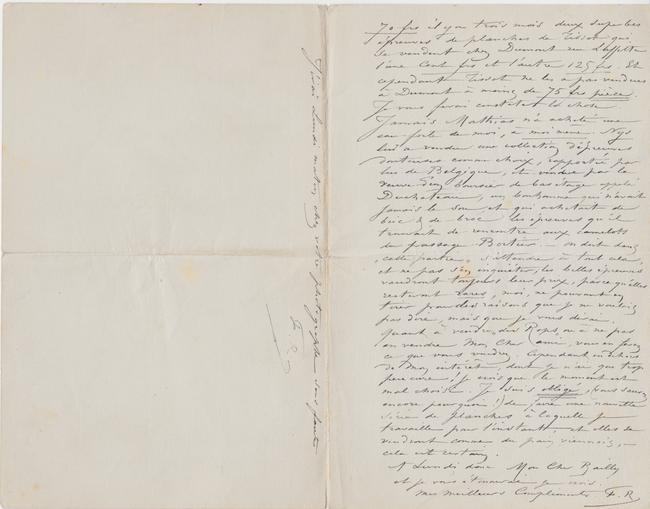 70 frs il y a trois mois deux superbes
épreuves de planches de Tissot qui
se vendent chez Dumont rue Laffitte
l'une Cent frs et l'autre 125 frs. Et
cependant Tissot ne les a pas vendues
à Dumont à moins de 75 frs pièce.
Je vous ferai constater la chose
Jamais Mathias n'a acheté une
eau-forte de moi, à moi même. Nys
lui a vendu une collection d'épreuves
douteuses comme choix, rapportée par
lui de Belgique, et vendue par la
veuve d'un boursier de bas étage appelé
Duchateau, un bonhomme qui n'avait
jamais le sou et qui achetait de
bric & de broc les épreuves qu'il
trouvait de rencontre aux camelots
du passage - on doit dans
cette partie, s'attendre à tout cela,
et ne pas s'en inquiéter, les belles épreuves
vaudront toujours leur prix, parce qu'elles
resteront rares, moi, ne pouvant en
tirer pour des raisons que je ne voulais
pas dire, mais que je vous dirai.
Quant à vendre des Rops, ou à ne pas
en vendre Mon Cher ami, vous en ferez
ce que vous voudrez, cependant en dehors
de mon intérêt, dont je n'ai que trop
peu cure, je crois que le moment est
mal choisi. Je suis obligé, (vous saurez
encore pourquoi!) de faire une nouvelle
série de planches à laquelle je
travaille pour l'instant et elles se
vendront comme du pain viennois, -
cela est certain.
A Lundi donc Mon Cher Bailly
et je vous je crois.
Mes meilleurs Compliments F. R
J'irai Lundi matin chez votre photographe sans faute
F. R